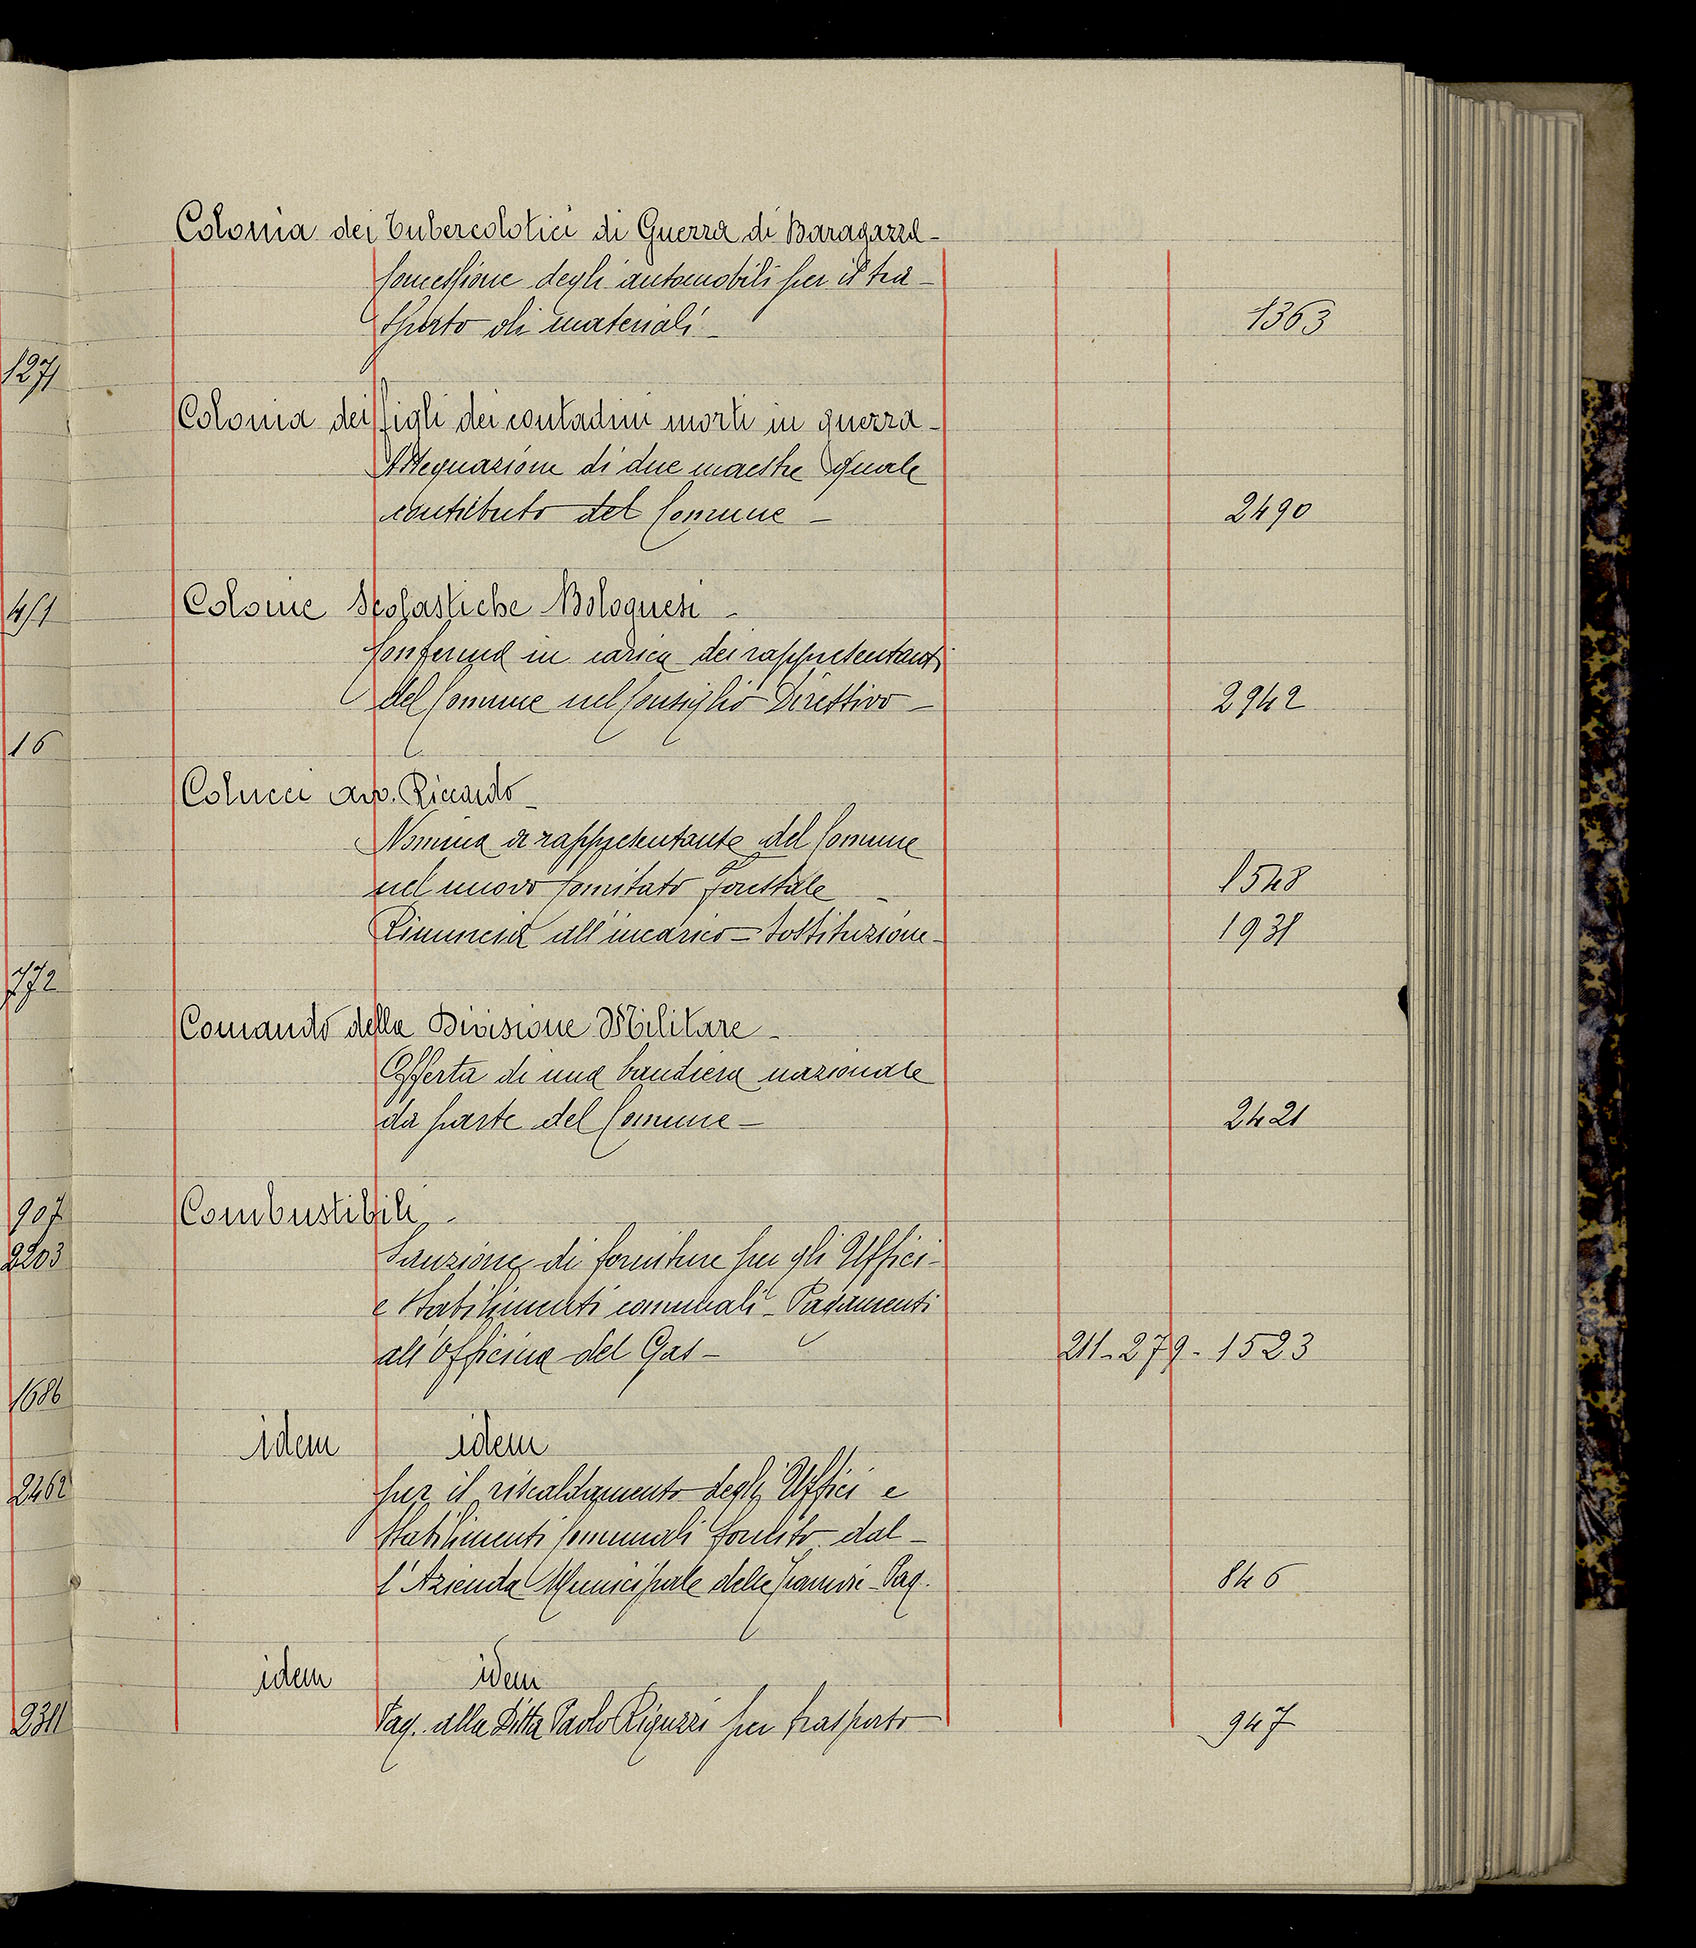 Colonia dei Tubercolotici di Guerra di Baragazza -
Concessione degli automobili per il tra -
sporto di materiali - 1363
1271
Colonia dei figli dei contadini morti in guerra -
Assegnazione di due maestre quale
contributo del Comune - 2490
451
Colonie Scolastiche Bolognesi -
Conferma in carica dei rappresentanti
del Comune nel Consiglio Direttivo - 2942
16
Colucci avv. Riccardo -
Nomina a rappresentante del Comune
nel nuovo Comitato Forestale - 1548
Rinuncia all'incarico - Sostituzione - 1931
772
Comando della Divisione Militare -
Offerta di una bandiera nazionale
da parte del Comune - 2421
907
Combustibili -
2203
Sanzione di forniture per gli Uffici -
e Stabilimenti comunali - Pagamenti
all'Officina del Gas - 211 - 279 - 1523
1686
idem idem
2462
per il riscaldamento degli Uffici e
Stabilimenti Comunali fornito dal -
l'Azienda Municipale delle Tramvie - Pag. 846
idem idem
2311
Pag. alla Ditta Paolo Riguzzi per trasporto 947